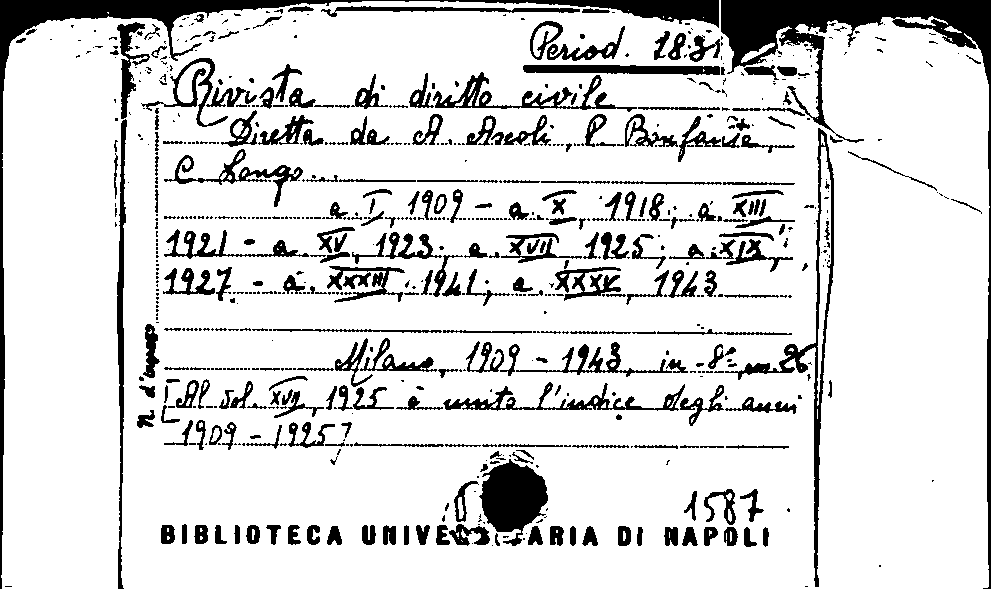 Period. 1831
Rivista di diritto civile
Diretta da A. Ascoli, P. Bonfante,
C. Longo...
a. I, 1909 - a. X, 1918; a. XIII
1921 - a. XV, 1923; a. XVII, 1925; a. XIX,
1927 - a. XXXIII, 1941; a. XXXV, 1943
Milano, 1909 - 1943, in -8°, cm. 26
[Al vol. XVII, 1925 è unito l'indice degli anni
1909 - 1925]
N. d'ingresso
1587
BIBLIOTECA UNIVERSITARIA DI NAPOLI